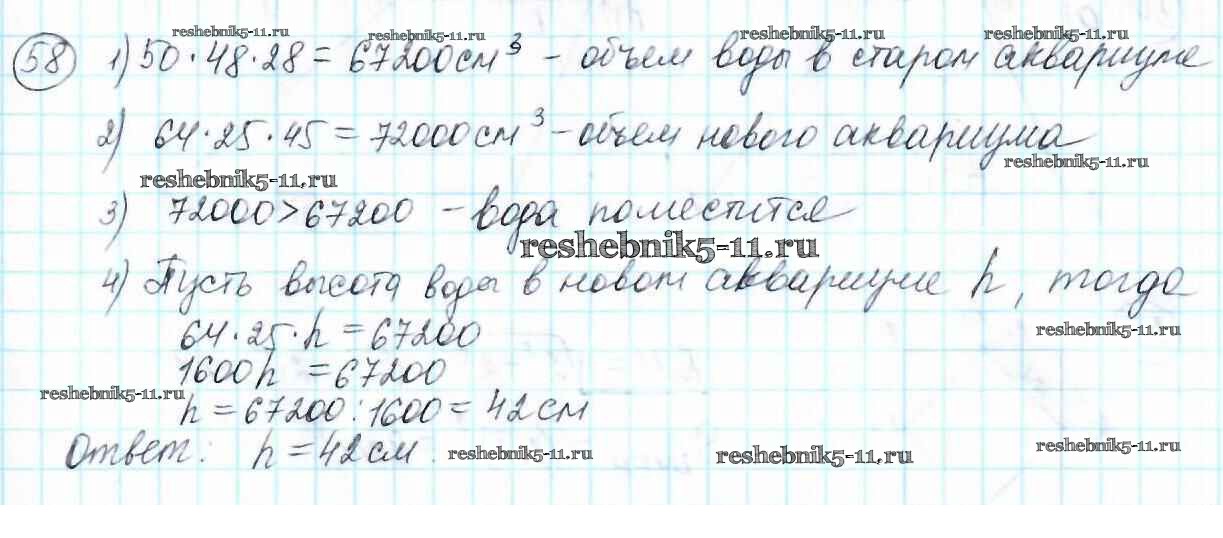 reshebnik5-11.ru reshebnik5-11.ru reshebnik5-11.ru reshebnik5-11.ru
58 1) 50·48·28 = 67200 см³ - объем воды в старом аквариуме
2) 64·25·45 = 72000 см³ - объем нового аквариума
reshebnik5-11.ru reshebnik5-11.ru
3) 72000>67200 - вода поместится
reshebnik5-11.ru
4) Пусть высота воды в новом аквариуме h, тогда
64·25·h = 67200
reshebnik5-11.ru
1600h = 67200
reshebnik5-11.ru
h = 67200:1600 = 42 см
Ответ: h = 42 см.
reshebnik5-11.ru reshebnik5-11.ru reshebnik5-11.ru